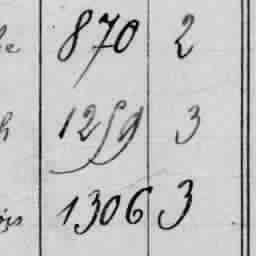 870 2
1259 3
1306 3